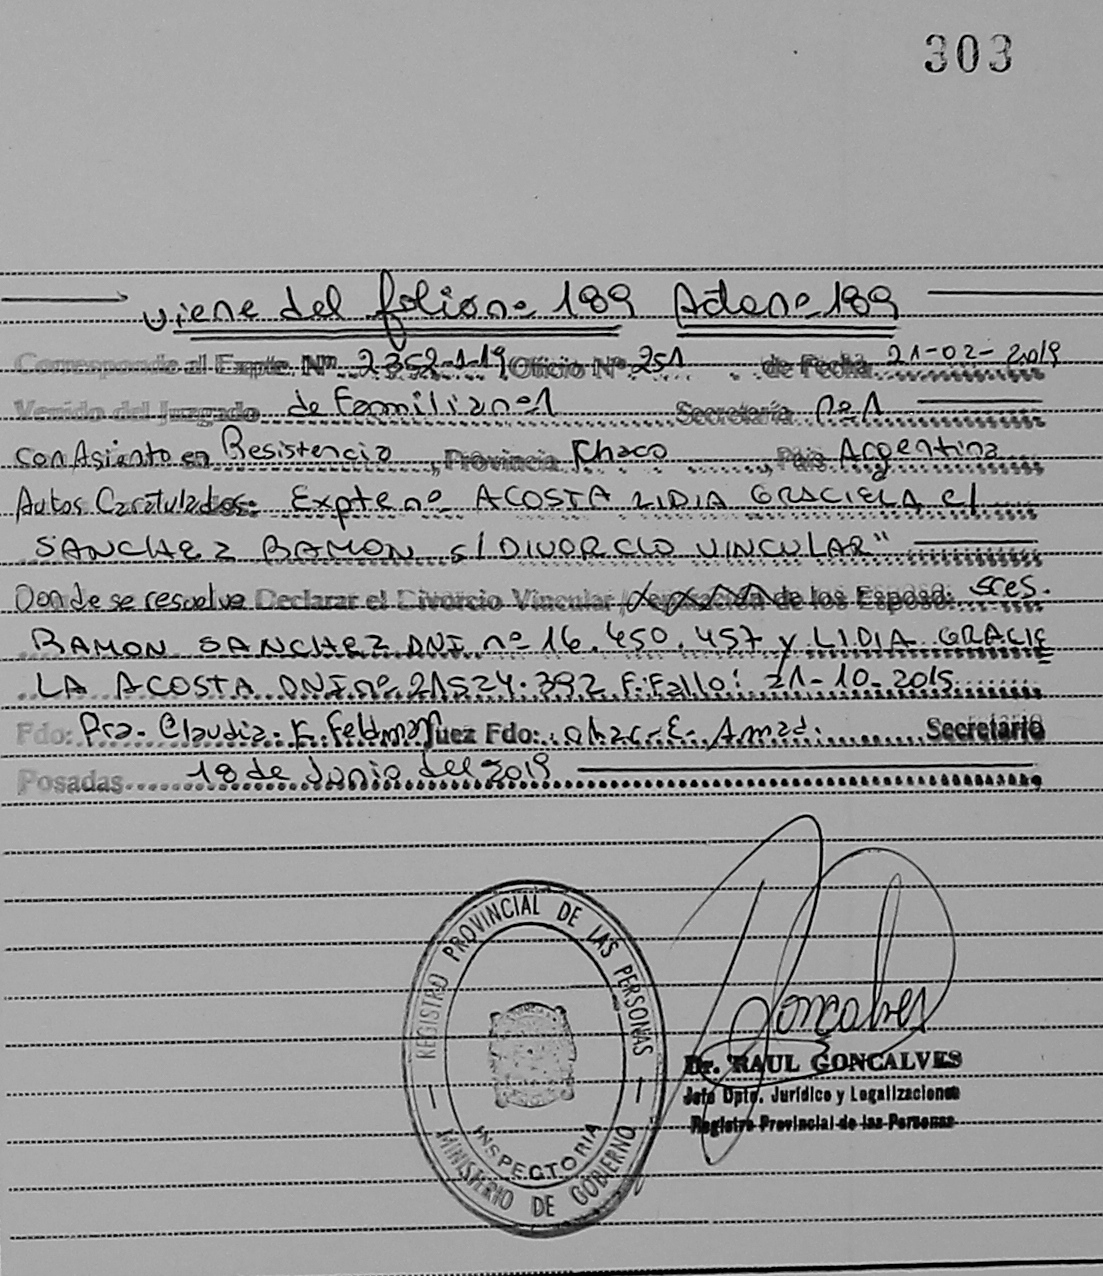 303
viene del folio nº 189 Acta nº 189
Corresponde al Expte. Nº 2352-1-19 Oficio Nº 251 de Fecha 21-02-2019
Venido del Juzgado de Familia nº 1 Secretaría nº 1
con Asiento en Resistencia, Provincia Chaco, País Argentina
Autos Caratulados: Expte nº ACOSTA LIDIA GRACIELA c/
SANCHEZ RAMON s/ DIVORCIO VINCULAR"
Donde se resuelve Declarar el Divorcio Vincular de los Esposo: sres.
RAMON SANCHEZ DNI nº 16.450.457 y LIDIA GRACIE
LA ACOSTA DNI nº 21524.392 F. Fallo: 21-10-2015
Fdo: Dra. Claudia. Juez Fdo: E. Amad. Secretario
Posadas 18 de Junio del 2019
REGISTRO PROVINCIAL DE LAS PERSONAS
INSPECTORIA
MINISTERIO DE GOBIERNO
Goncalves
Dr. RAUL GONCALVES
Jefe Dpto. Jurídico y Legalizaciones
Registro Provincial de las Personas